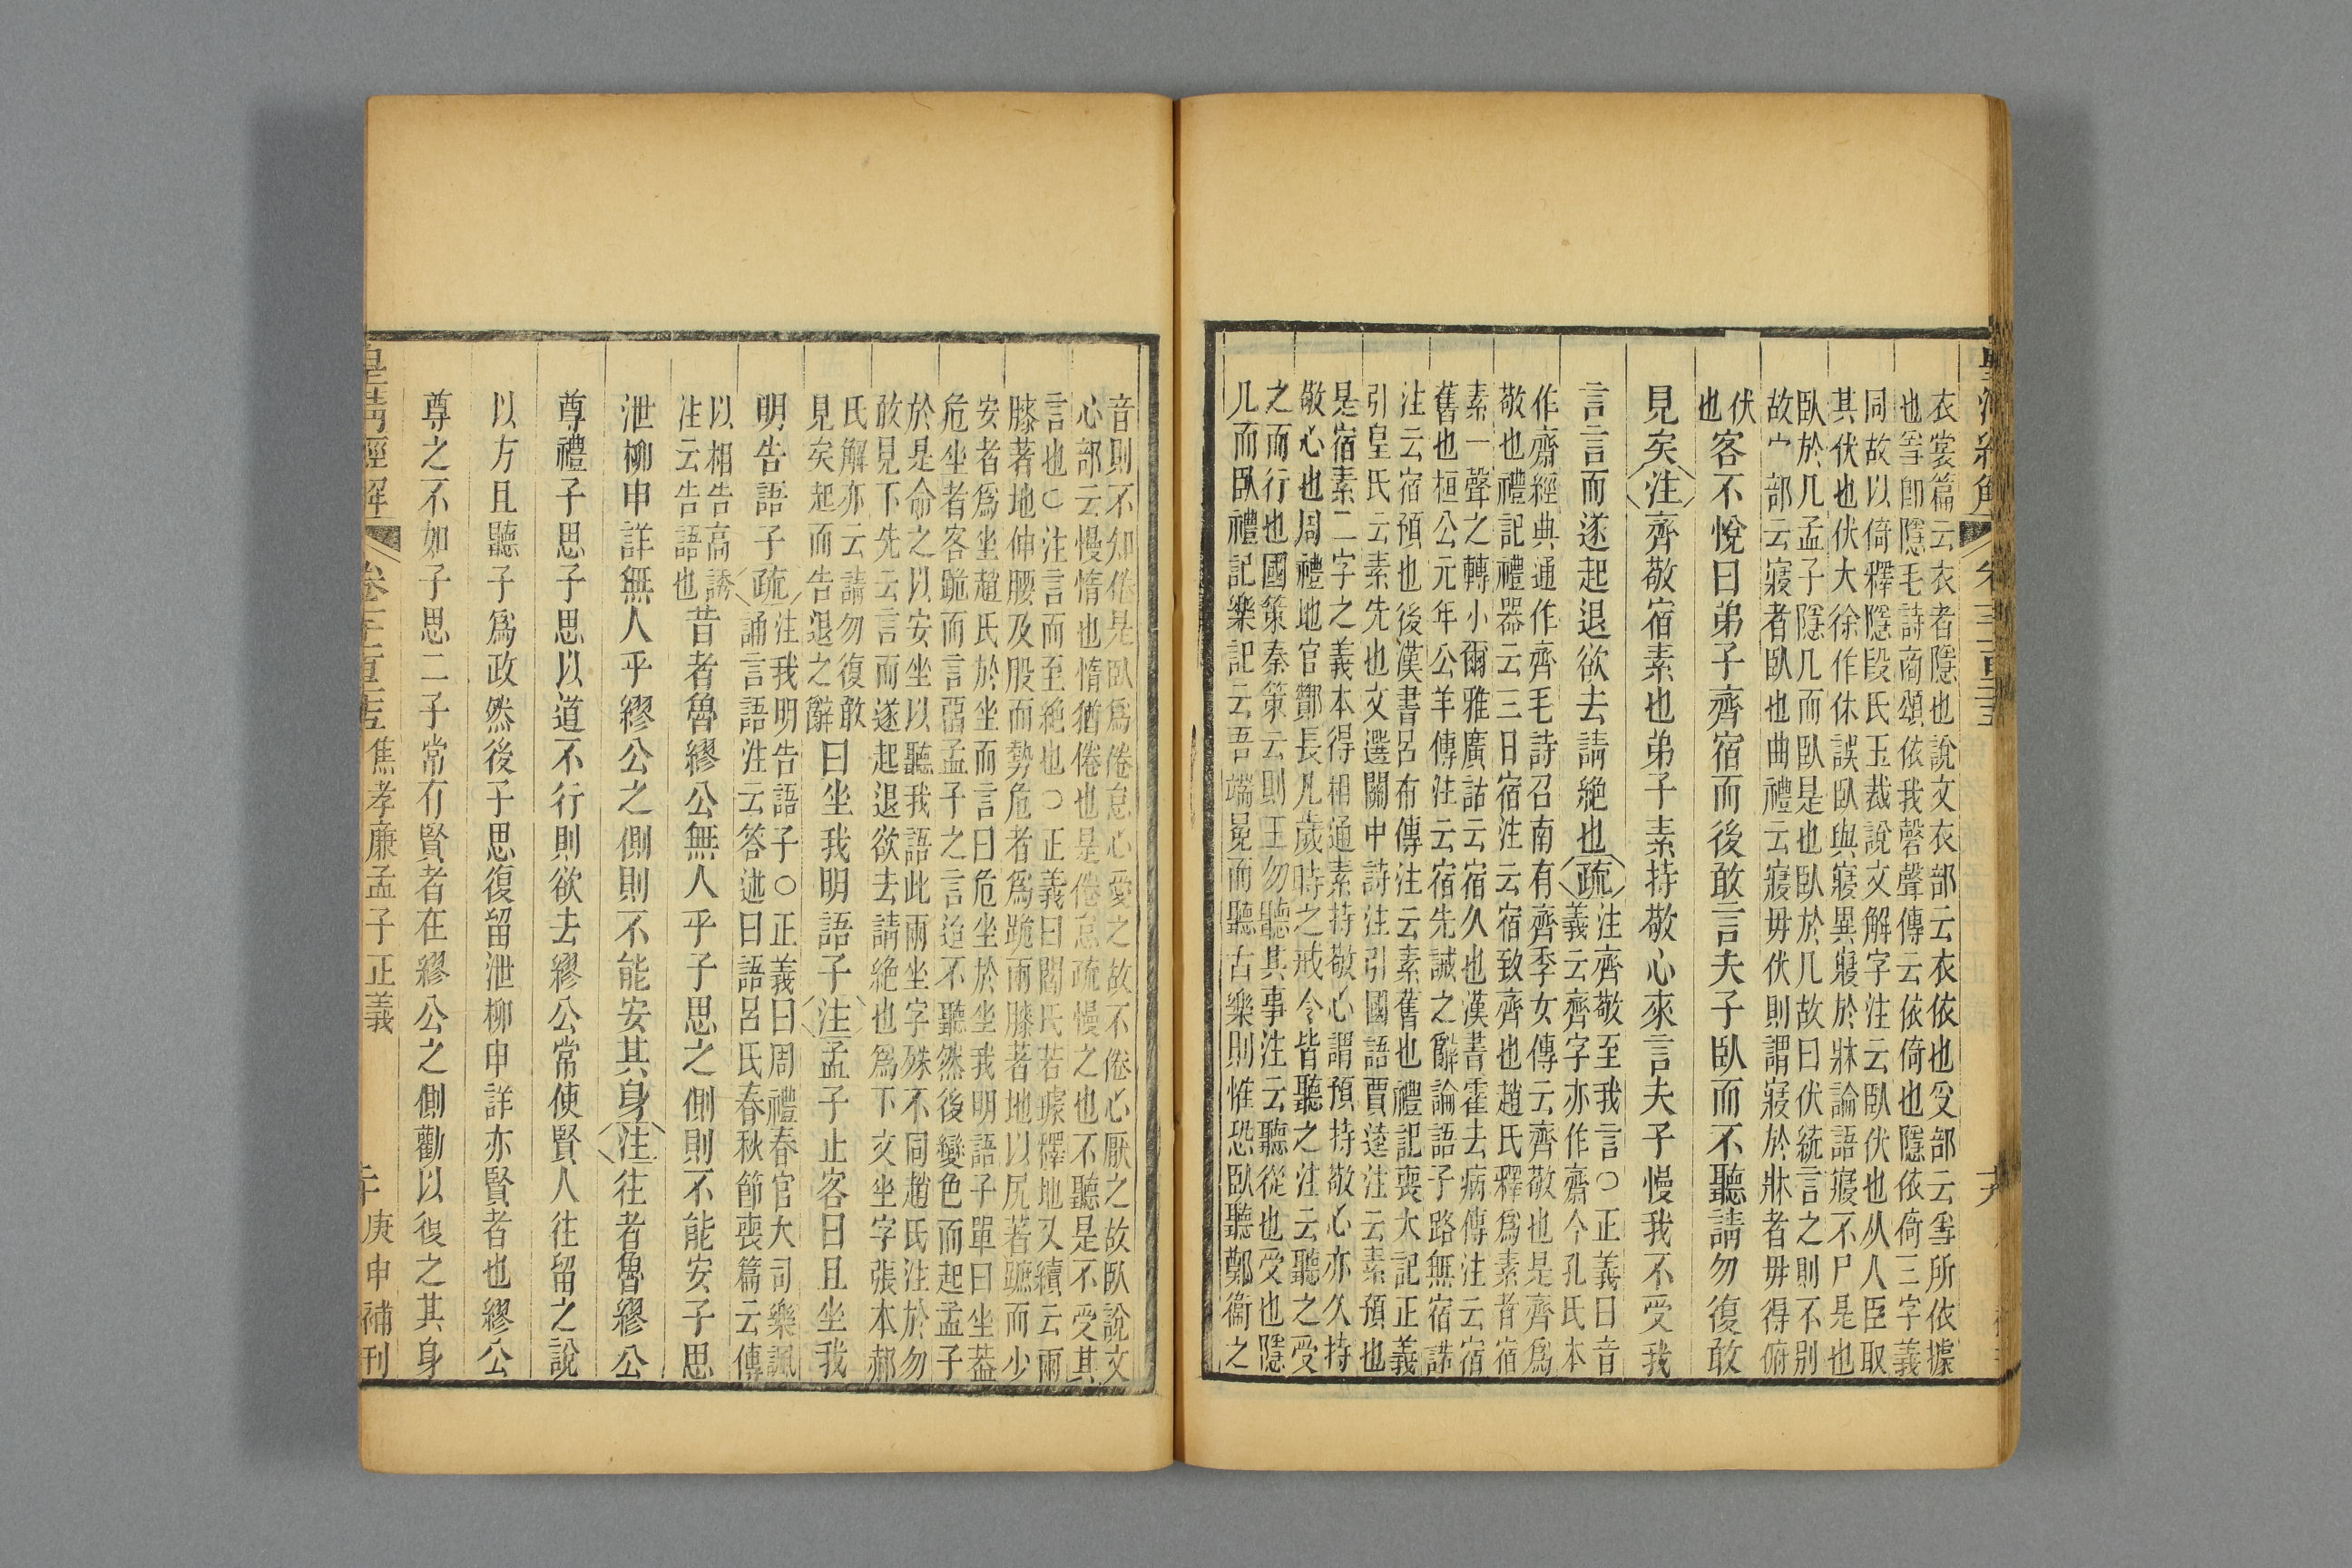 衣裳篇云衣者隱也說文衣部云衣依也𠬪部云㥯所依據
也㥯卽隱毛詩商頌依我磬聲傳云依倚也隱依倚三字義
同故以倚釋隱段氏玉裁說文解字注云臥伏也从人臣取
其伏也伏大徐作休誤臥與寢異寢於牀論語寢不尸是也
臥於几孟子隱几而臥是也臥於几故曰伏統言之則不別
故宀部云寢者臥也曲禮云寢毋伏則謂寢於牀者毋得俯
伏
也
客不悅曰弟子齊宿而後敢言夫子臥而不聽請勿復敢
見矣注齊敬宿素也弟子素持敬心來言夫子慢我不受我
言言而遂起退欲去請絶也疏
注齊敬至我言○正義曰音
義云齊字亦作齋今孔氏本
作齋經典通作齊毛詩召南有齊季女傳云齊敬也是齊爲
敬也禮記禮器云三日宿注云宿致齊也趙氏釋爲素者宿
素一聲之轉小爾雅廣詁云宿久也漢書霍去病傳注云宿
舊也桓公元年公羊傳注云宿先誡之辭論語子路無宿諾
注云宿預也後漢書呂布傳注云素舊也禮記喪大記正義
引皇氏云素先也文選關中詩注引國語賈逵注云素預也
是宿素二字之義本得相通素持敬心謂預持敬心亦久持
敬心也周禮地官鄼長凡歲時之戒令皆聽之注云聽之受
之而行也國策秦策云則王勿聽其事注云聽從也受也隱
几而臥禮記樂記云吾端冕而聽古樂則惟恐臥聽鄭衞之
音則不知倦是臥爲倦怠心愛之故不倦心厭之故臥說文
心部云慢惰也惰猶倦也是倦怠疏慢之也不聽是不受其
言也○注言而至絶也○正義曰閻氏若璩釋地又續云兩
膝著地伸腰及股而勢危者爲跪兩膝著地以尻著蹠而少
安者爲坐趙氏於坐而言曰危坐於坐我明語子單曰坐葢
危坐者客跪而言當孟子之言迨不聽然後變色而起孟子
於是命之以安坐以聽我語此兩坐字殊不同趙氏注於勿
敢見下先云言而遂起退欲去請絶也爲下文坐字張本郝
氏解亦云請勿復敢
見矣起而告退之辭
曰坐我明語子注孟子止客曰且坐我
明告語子疏
注我明告語子○正義曰周禮春官大司樂諷
誦言語注云答述曰語呂氏春秋節喪篇云傳
以相告高誘
注云告語也
昔者魯繆公無人乎子思之側則不能安子思
泄柳申詳無人乎繆公之側則不能安其身注往者魯繆公
尊禮子思子思以道不行則欲去繆公常使賢人往留之說
以方且聽子爲政然後子思復留泄柳申詳亦賢者也繆公
尊之不如子思二子常有賢者在繆公之側勸以復之其身
皇淸經解 焦孝廉孟子正義 庚申補刊